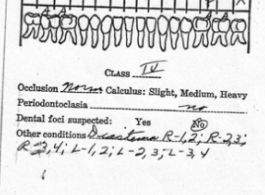 CLASS IV
Occlusion Norm Calculus: Slight, Medium, Heavy
Periodontoclasia no
Dental foci suspected: Yes No
Other conditions Diastema R-1,2; R-2,3;
R-3,4; L-1,2; L-2,3; L-3,4